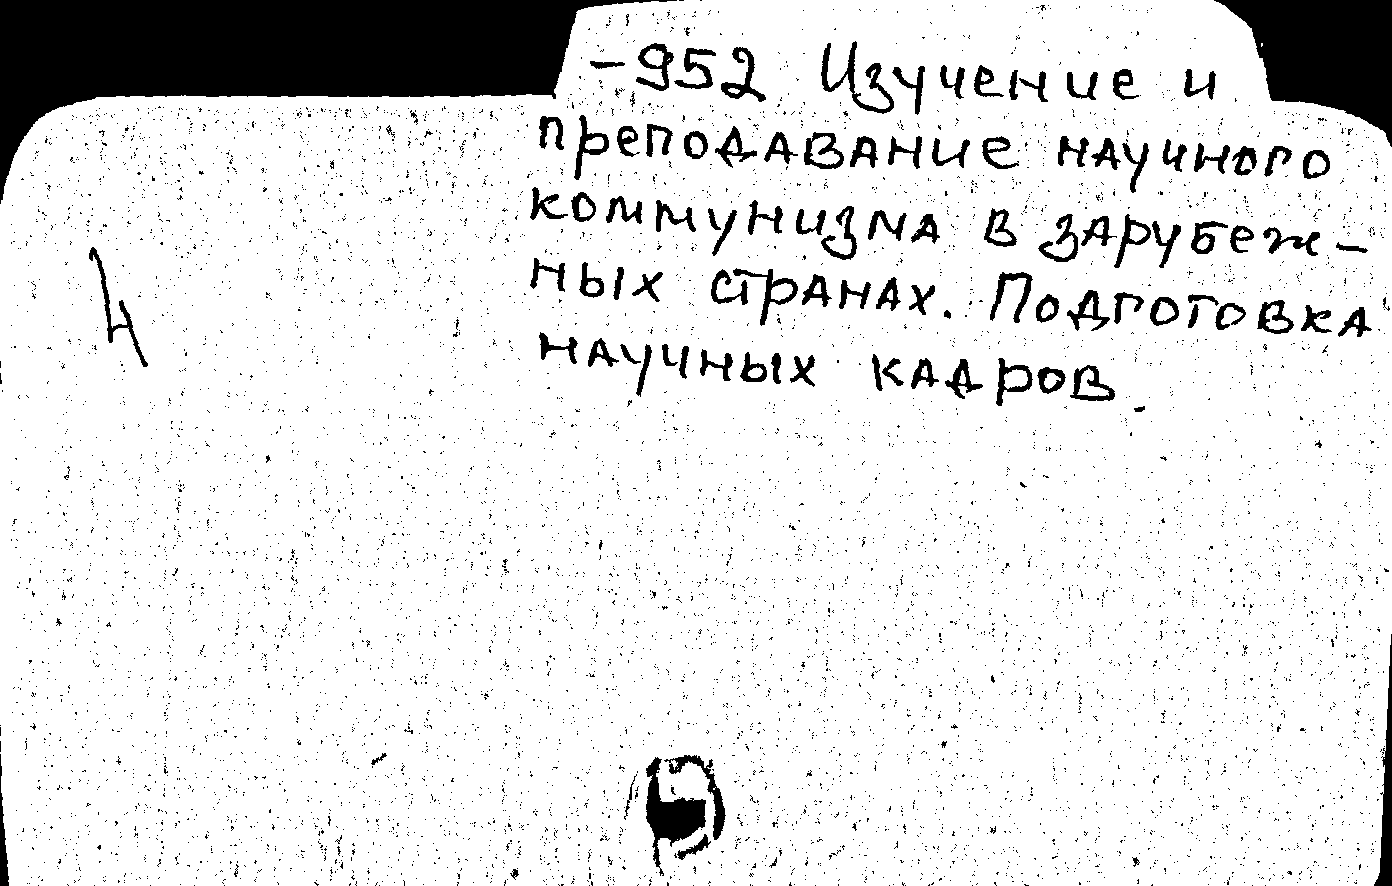 -952 Изучение и
преподавание научного
коммунизма в зарубеж-
ных странах. Подготовка
научных кадров.